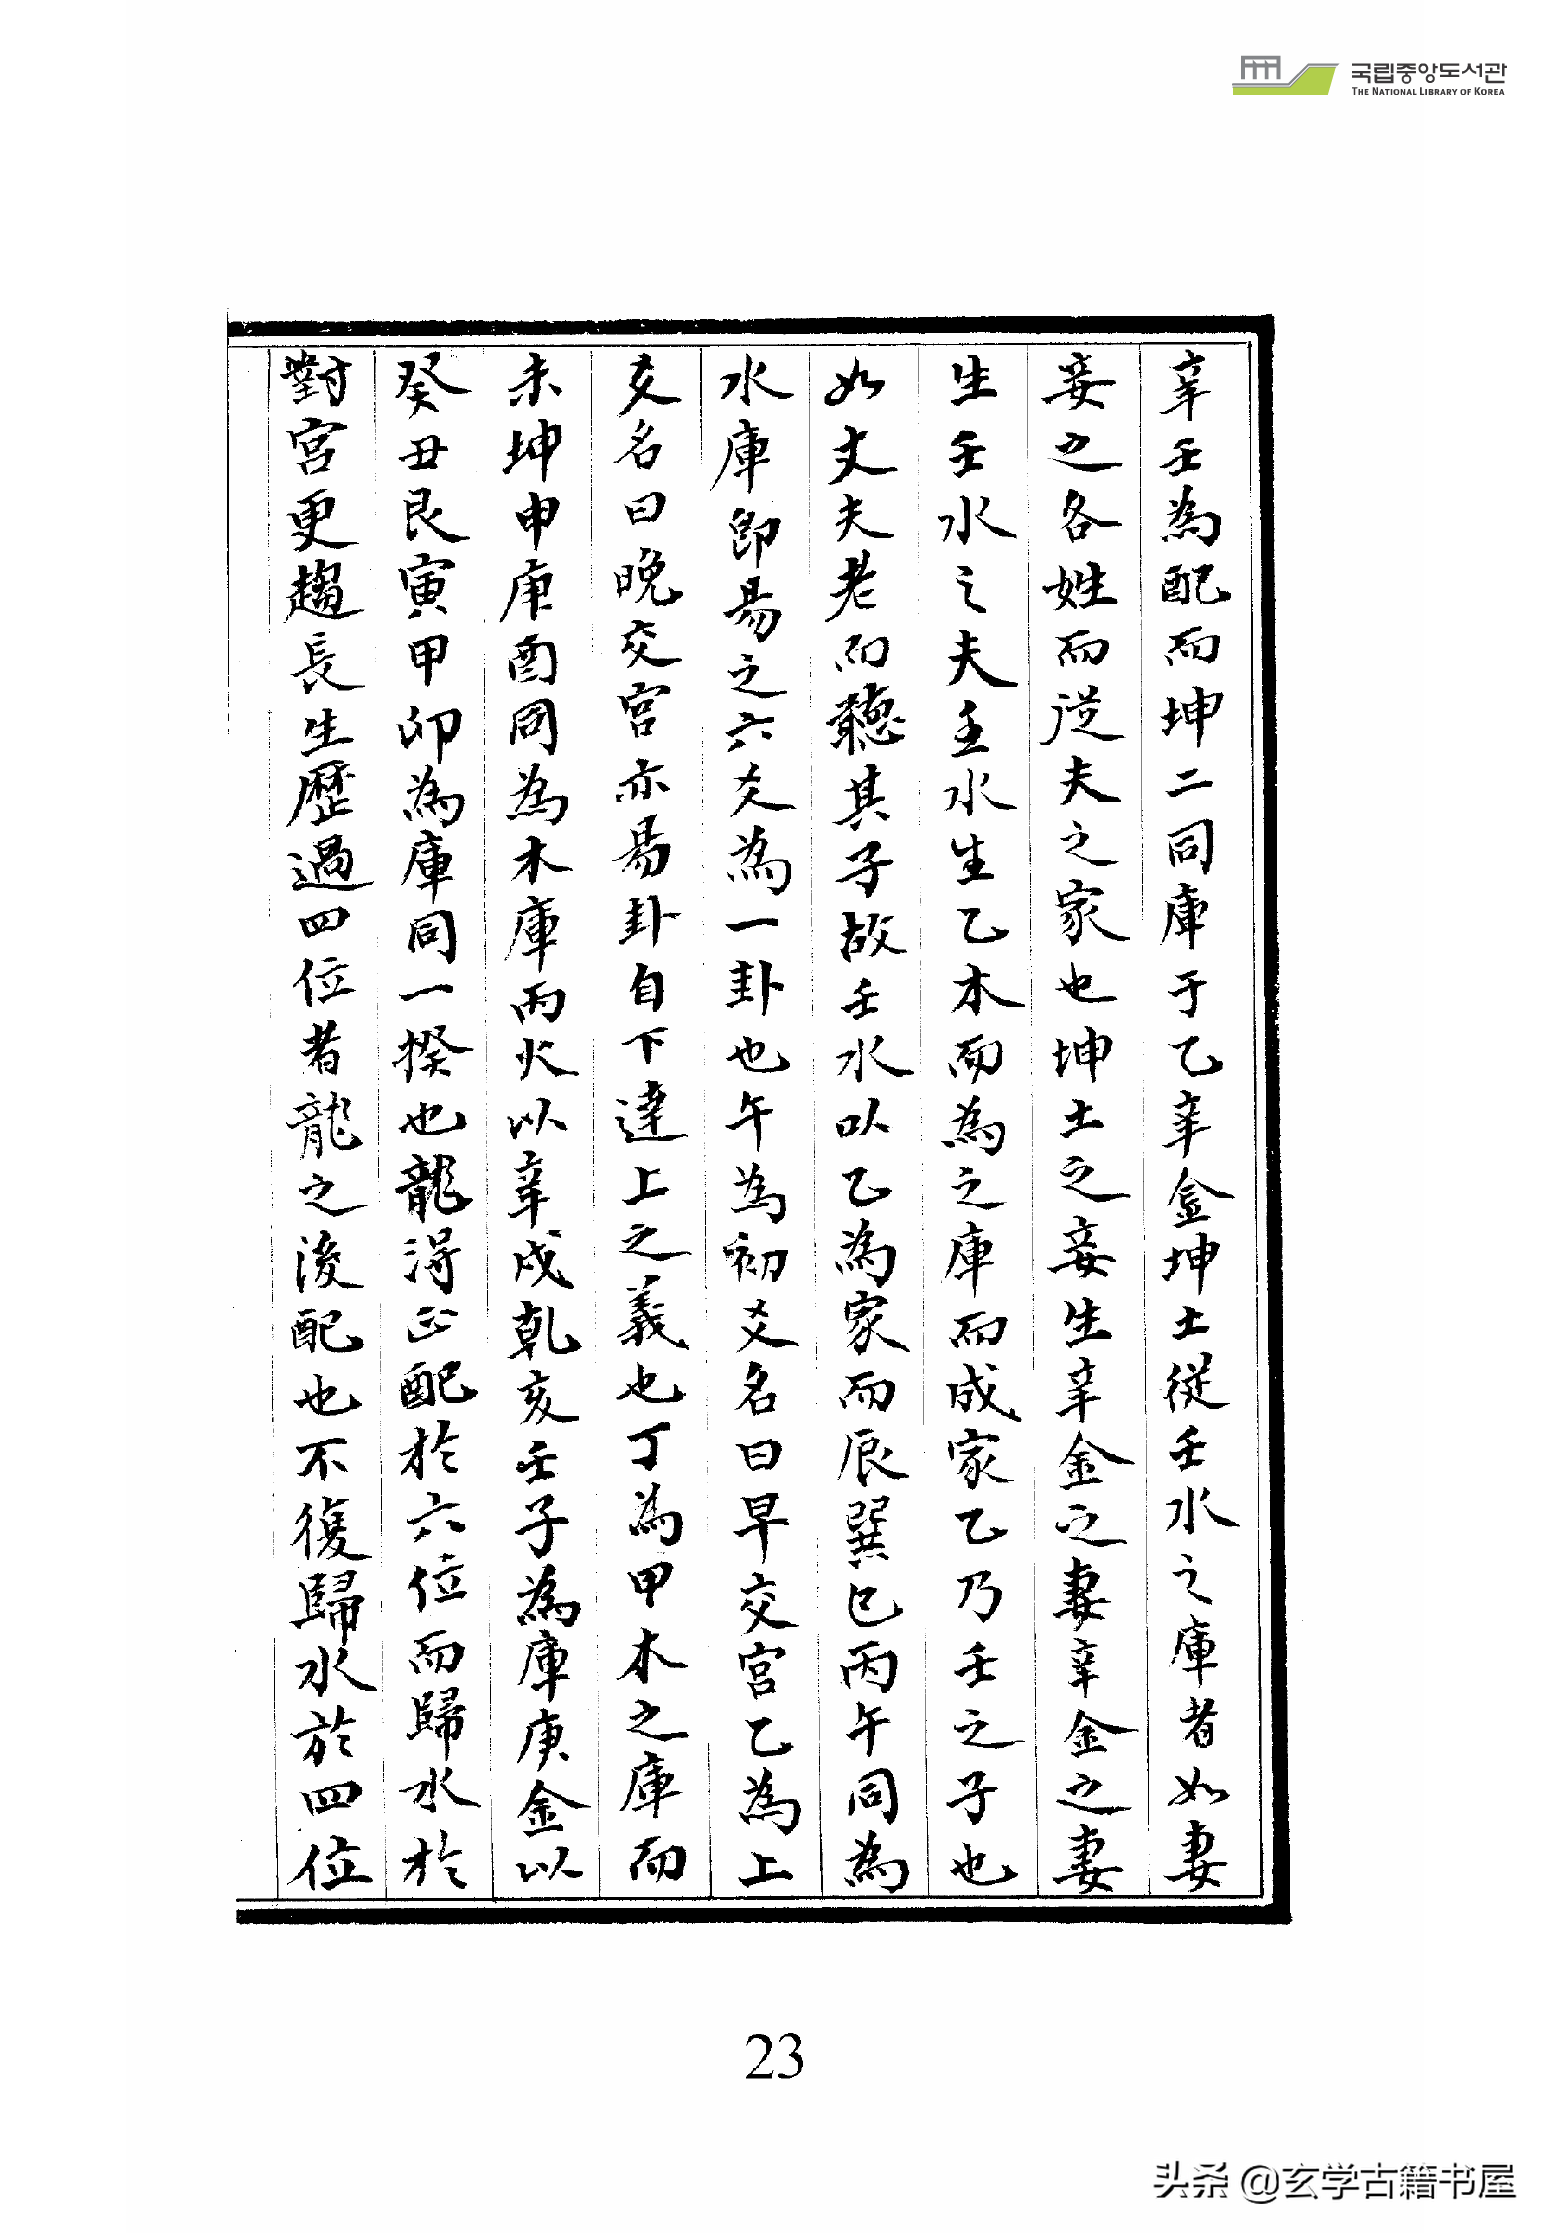 국립중앙도서관
THE NATIONAL LIBRARY OF KOREA
辛壬為配而坤二同庫于乙辛金坤土從壬水之庫者如妻
妾之各姓而從夫之家也坤土之妾生辛金之妻辛金之妻
生壬水之夫壬水生乙木而為之庫而成家乙乃壬之子也
如丈夫老而聽其子故壬水以乙為家而辰巽巳丙午同為
水庫卽易之六爻為一卦也午為初爻名曰早交宮乙為上
爻名曰晚交宮亦易卦自下達上之義也丁為甲木之庫而
未坤申庚酉同為木庫丙火以辛戌乾亥壬子為庫庚金以
癸丑艮寅甲卯為庫同一揆也龍得正配於六位而歸水於
對宮更趨長生歷過四位者龍之後配也不復歸水於四位
23
头条 @玄学古籍书屋